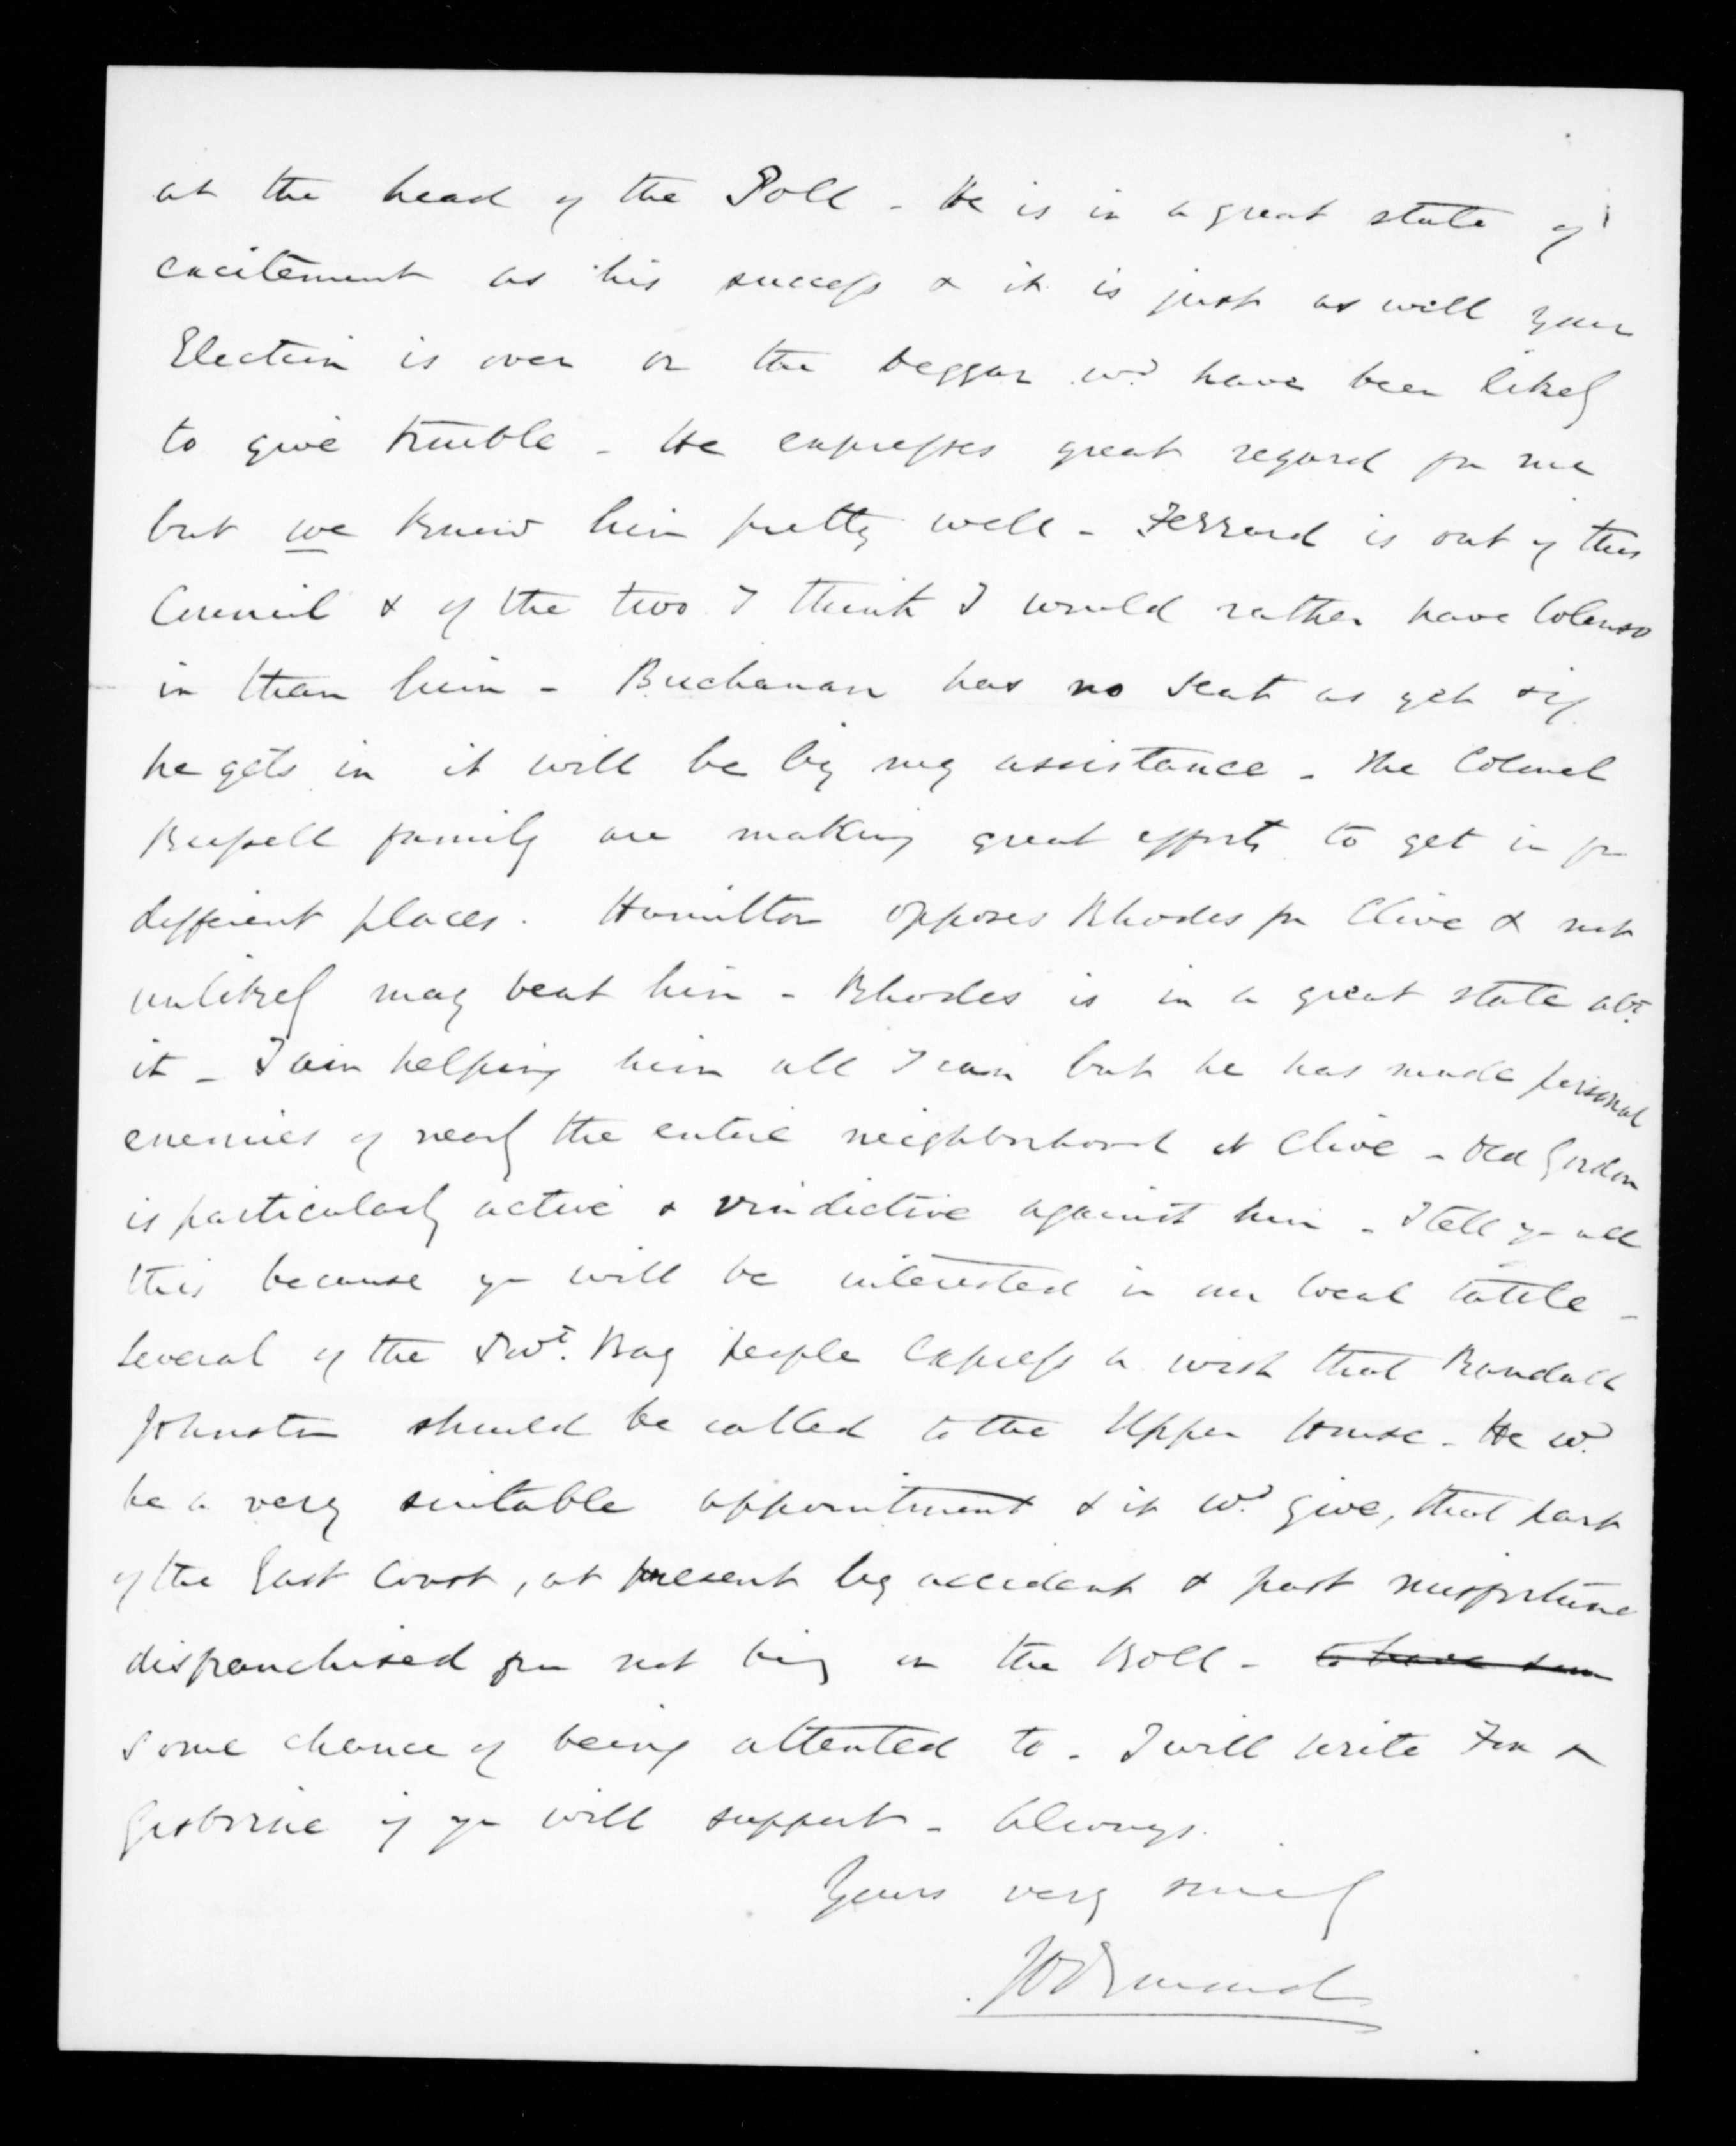 at the head of the Poll - He is in a great state of
excitement as his success & it is just as well your
Election is over or the beggar wd have been likely
to give trouble - He expresses great regard for me
but we know him pretty well - Ferrard is out of this
Council & of the two I think I would rather have Colenso
in than him - Buchanan has no seat as yet & if
he gets in it will be by my assistance - The Colonel
Russell family are making great efforts to get in for
different places. Hamilton opposes Rhodes for Clive & not
unlikely may beat him - Rhodes is in a great state abt
it - I am helping him all I can but he has made personal
enemies of nearly the entire neighborhood at Clive - Old Gordon
is particularly active & vindictive against him - I tell yo all
this because yo will be interested in our local tattle -
Several of the Povt. Bay people express a wish that Randall
Johnston should be called to the Upper House - He wd
be a very suitable appointment & it wd give, that part
of the East Coast, at present by accident & past misfortune
disfranchised for not being on the Roll - to have som
some chance of being attented to - I will write Fox &
Gisborne if yo will support - Always.
Yours very sincely
JD Ormond